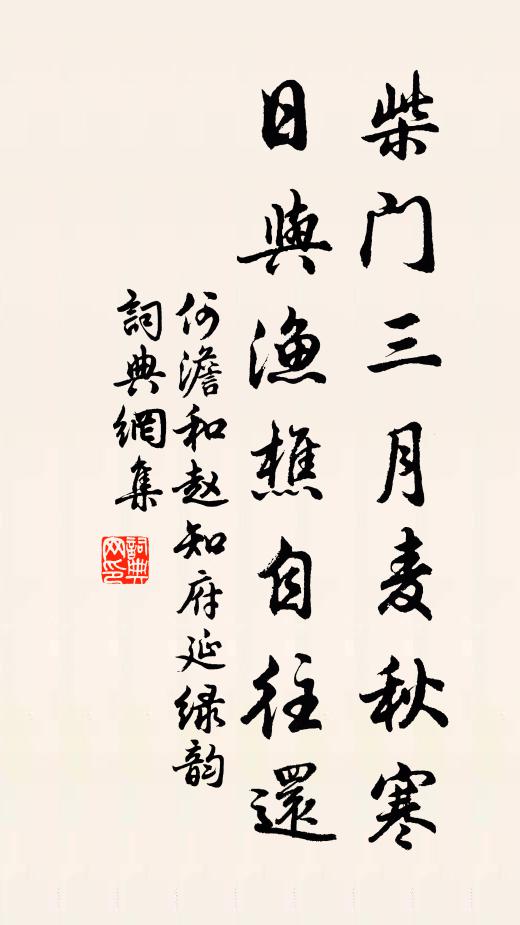 柴门三月麦秋寒
日與漁樵自往還
何澹和赵知府延绿韵
詞典網集
詞典网印